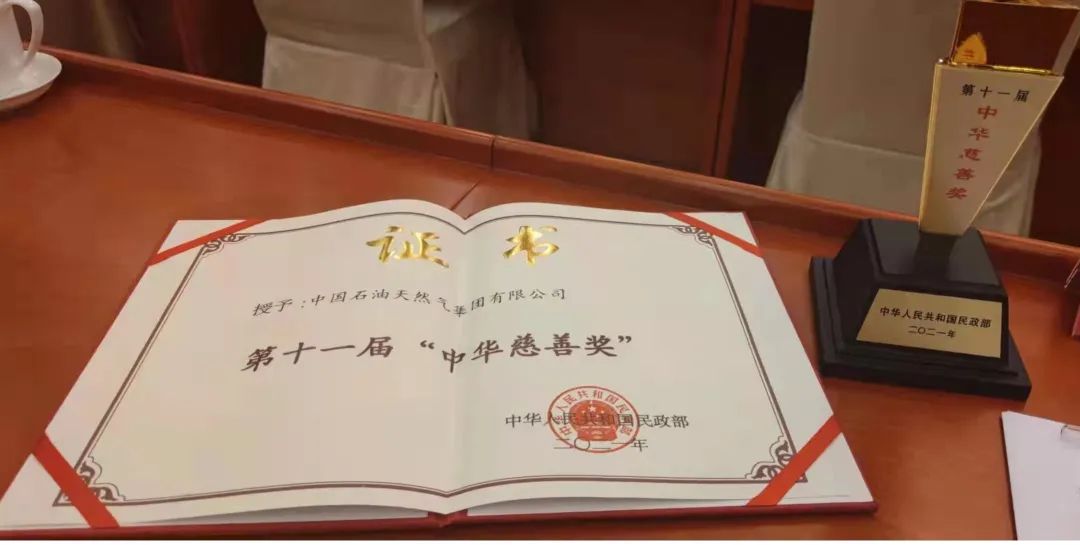 证书
授予：中国石油天然气集团有限公司
第十一届“中华慈善奖”
中华人民共和国民政部
二〇二一年
中华人民共和国民政部
第十一届
中华慈善奖
中华人民共和国民政部
二〇二一年